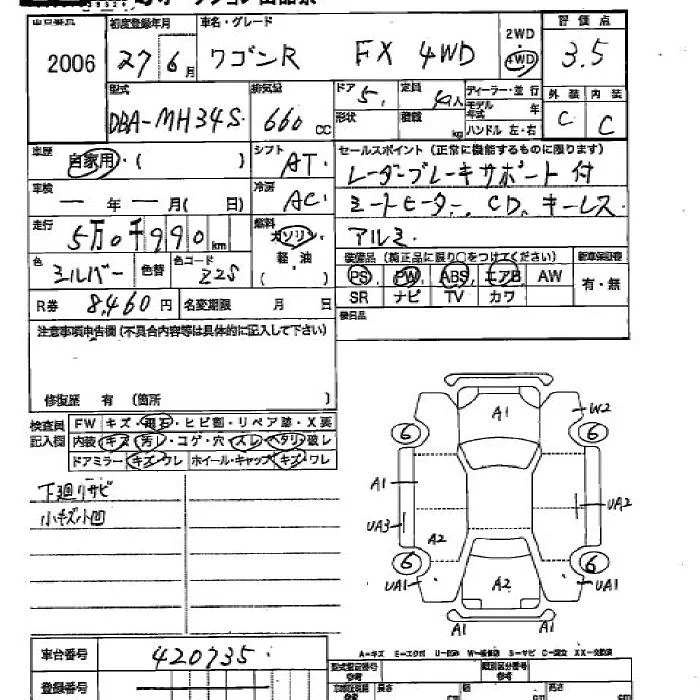 2006
初度登録年月 27 6月
車名・グレード ワゴンR FX 4WD
2WD
4WD
評価点 3.5
型式 DBA-MH34S
排気量 660 CC
ドア 5
定員 人
形状
積載 kg
ディーラー・並行
モデル年式 年
ハンドル 左・右
外装 C
内装 C
車歴 自家用・( )
シフト AT
車検 ー年ー月(日)
冷房 AC
走行 5万0千990km
燃料 ガソリン
軽油
( )
色 シルバー
色替
色コード Z2S
R券 8,460円
名変期限 月 日
セールスポイント (正常に機能するものに限ります)
レーダーブレーキサポート付
シートヒーター、CD、キーレス
アルミ
装備品 (純正品に限り○をつけてください)
新車保証書
PS PW ABS エアB AW
SR ナビ TV カワ
有・無
後日品
注意事項申告欄 (不具合内容等は具体的に記入して下さい)
修復歴 有 (箇所 )
検査員
記入欄
FW キズ・飛石・ヒビ割・リペア跡・X要
内装 キズ・汚レ・コゲ・穴・スレ・ヘタリ・破レ
ドアミラー キズ・ワレ ホイール・キャップ キズ・ワレ
下廻りサビ
小キズ小凹
A1
W2
6
6
A1
UA2
UA3
A2
6
6
UA1
A2
UA1
A1
A1
車台番号 420735
登録番号
A=キズ E=エクボ U=凹ミ W=補修跡 S=サビ C=腐食 XX=交換済
型式指定番号
参考
類別区分番号
参考
長さ cm
幅 cm
高さ cm